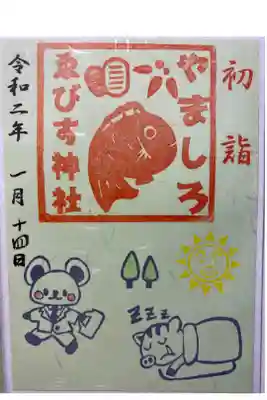 初詣
やましろ
ゑびす神社
令和二年 一月 十四日
ZZZ